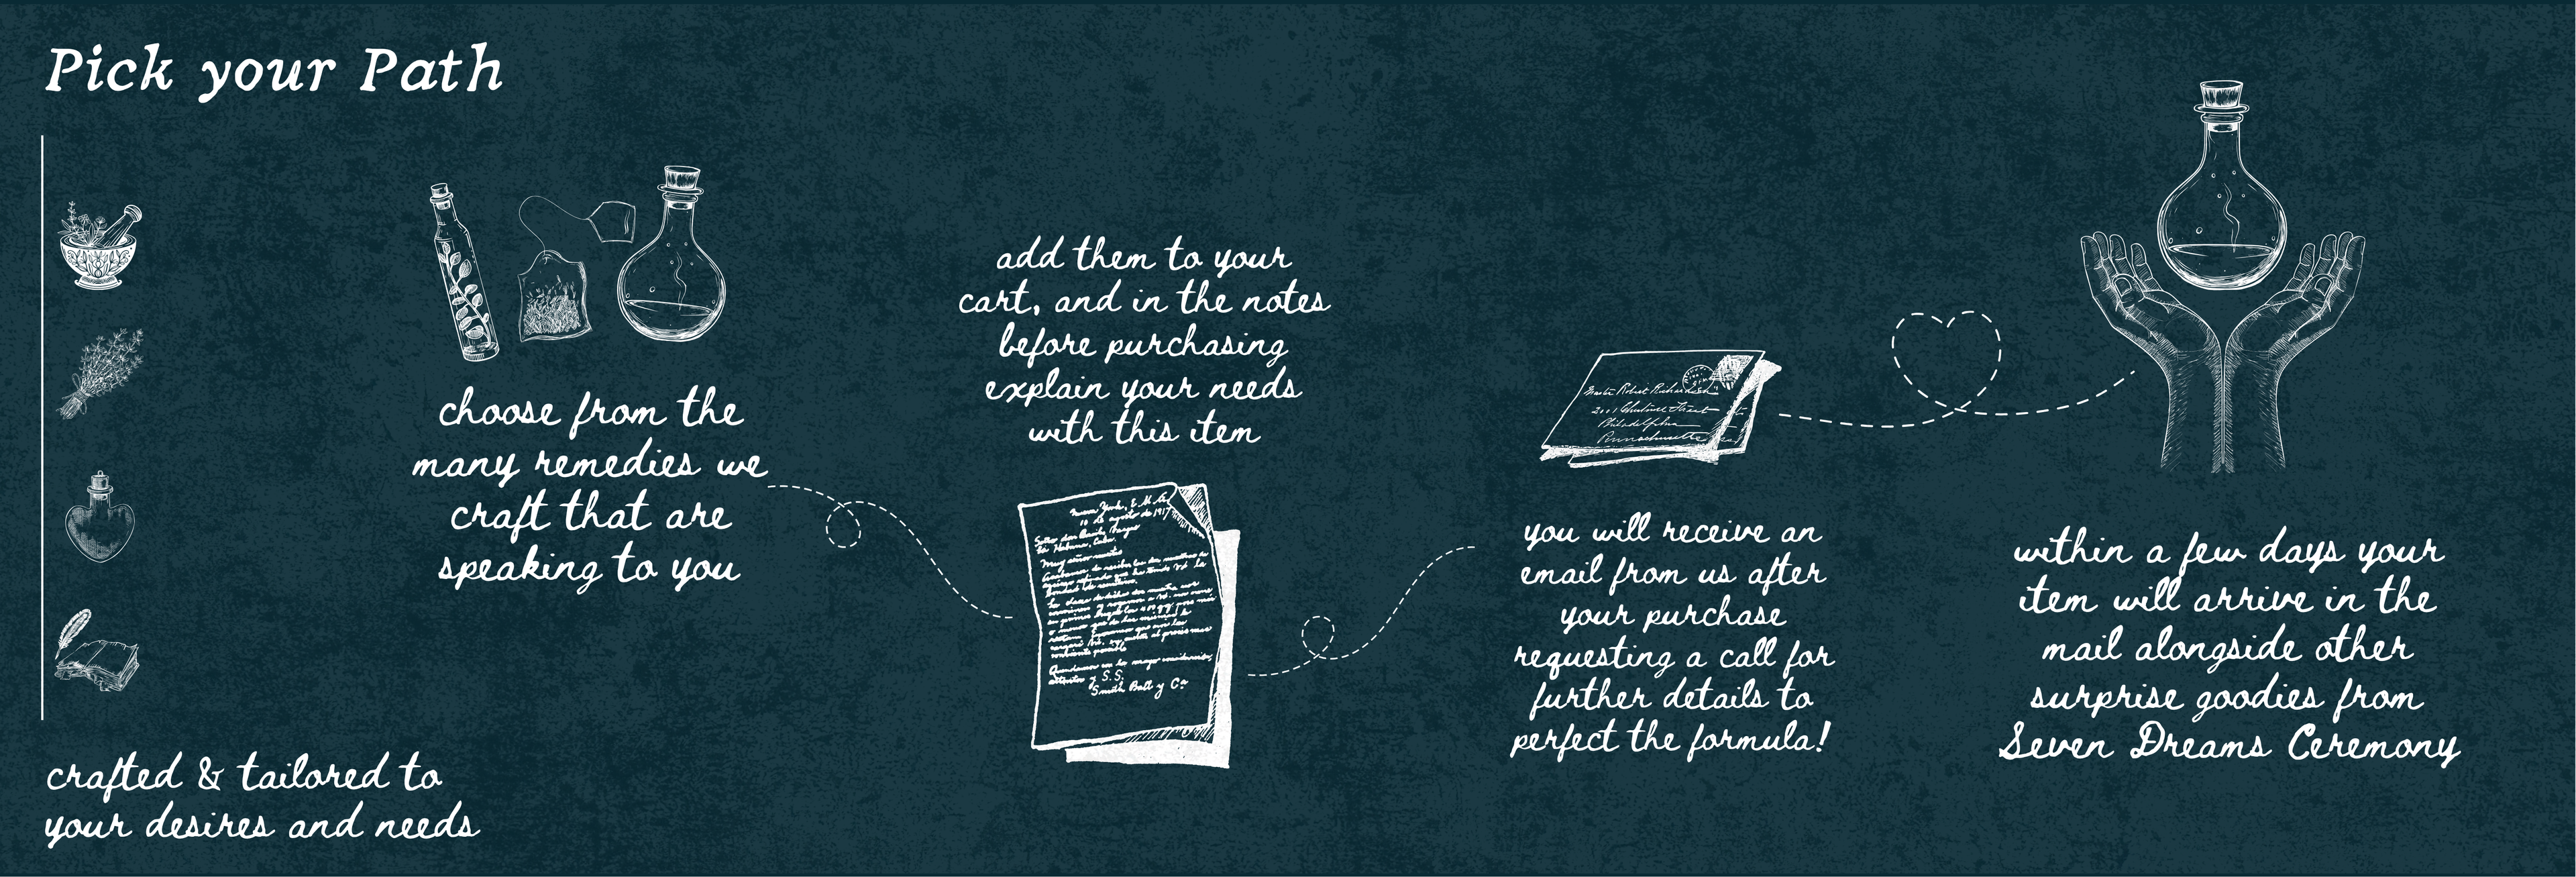 Pick your Path
choose from the
many remedies we
craft that are
speaking to you
add them to your
cart, and in the notes
before purchasing
explain your needs
with this item
you will receive an
email from us after
your purchase
requesting a call for
further details to
perfect the formula!
within a few days your
item will arrive in the
mail alongside other
surprise goodies from
Seven Dreams Ceremony
crafted & tailored to
your desires and needs
10 de agosto de 1917
Smith Ball y Cª
Philadelphia